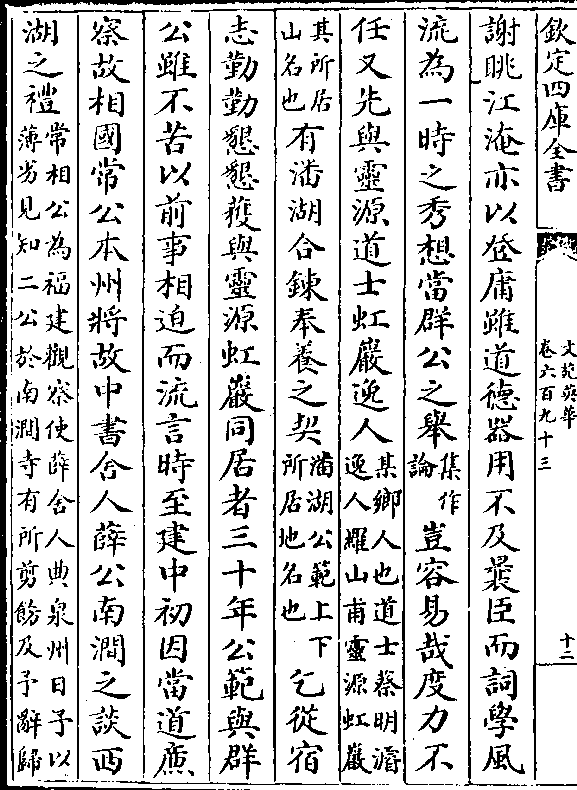 欽定四庫全書
文苑英華
卷六百九十三
十二
謝眺江淹亦以登庸雖道德器用不及曩臣而詞學風
流為一時之秀想當群公之舉集作論豈容易哉度力不
任又先與靈源道士虹巖逸人某鄉人也道士蔡明濬逸人羅山甫靈源虹巖
其所居山名也有潘湖合鍊奉養之契潘湖公範上下所居地名也乞從宿
志勤勤懇懇獲與靈源虹巖同居者三十年公範與群
公雖不苦以前事相迫而流言時至建中初因當道廉
察故相國常公本州將故中書舍人薛公南澗之談西
湖之禮常相公為福建觀察使薛舍人典泉州日予以薄劣見知二公於南澗寺有所剪飭及予辭歸